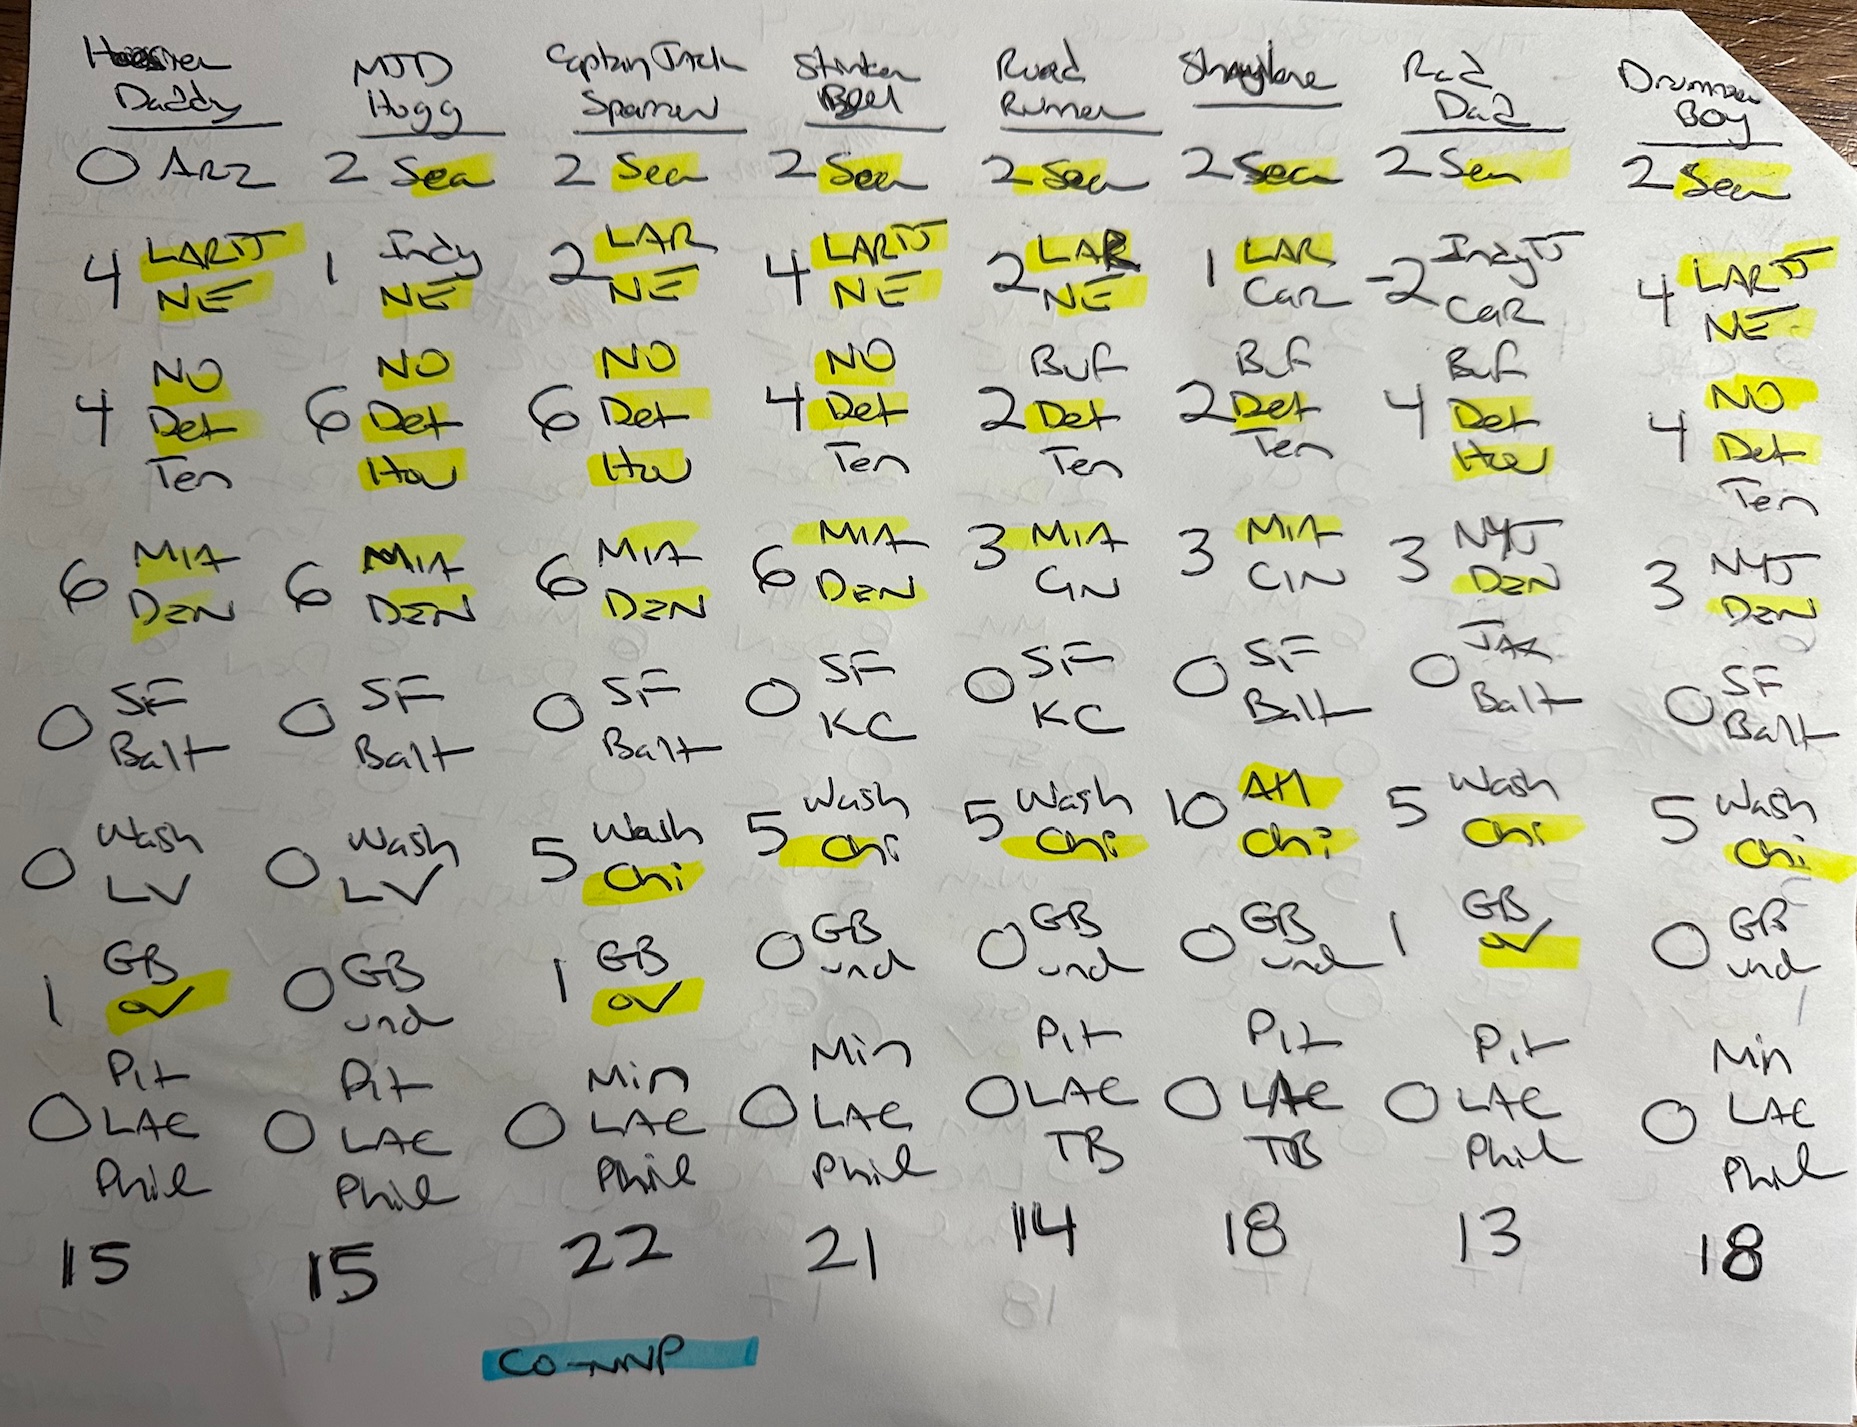 Hoosier
Daddy
0 ARZ
LARJJ
4
NE
NO
4 Det
Ten
MIA
6
DEN
SF
0
Balt
Wash
0
LV
GB
1
OV
Pit
0 LAC
Phil
15
MJD
Hogg
2 Sea
Indy
1
NE
NO
6 Det
Hou
MIA
6
DEN
SF
0
Balt
Wash
0
LV
GB
0
und
Pit
0
LAC
Phil
15
Captain Jack
Sparrow
2 Sea
LAR
2
NE
NO
6 Det
Hou
MIA
6
DEN
SF
0
Balt
Wash
5
Chi
GB
1
OV
Min
0 LAC
Phil
22
CO-NNP
Stinker
Bell
2 Sea
LARJJ
4
NE
NO
4 Det
Ten
MIA
6
DEN
SF
0
KC
Wash
5
Chi
GB
0
und
Min
0 LAC
Phil
21
Road
Runner
2 Sea
LAR
2
NE
Buf
2 Det
Ten
3 MIA
CIN
SF
0
KC
Wash
5
Chi
GB
0
und
Pit
0 LAC
TB
14
Shaylane
2 Sea
1 LAR
Car
Buf
2 Det
Ten
MIA
3
CIN
SF
0
Balt
Atl
10
Chi
GB
0
und
Pit
0 LAC
TB
18
Rad
Dad
2 Sea
IndyJJ
-2
Car
Buf
4 Det
Hou
NYJ
3
DEN
Jax
0
Balt
Wash
5
Chi
GB
1
OV
Pit
0 LAC
Phil
13
Drummer
Boy
2 Sea
LARJJ
4
NE
NO
4 Det
Ten
NYJ
3
DEN
SF
0
Balt
Wash
5
Chi
GB
0
und
Min
0 LAC
Phil
18